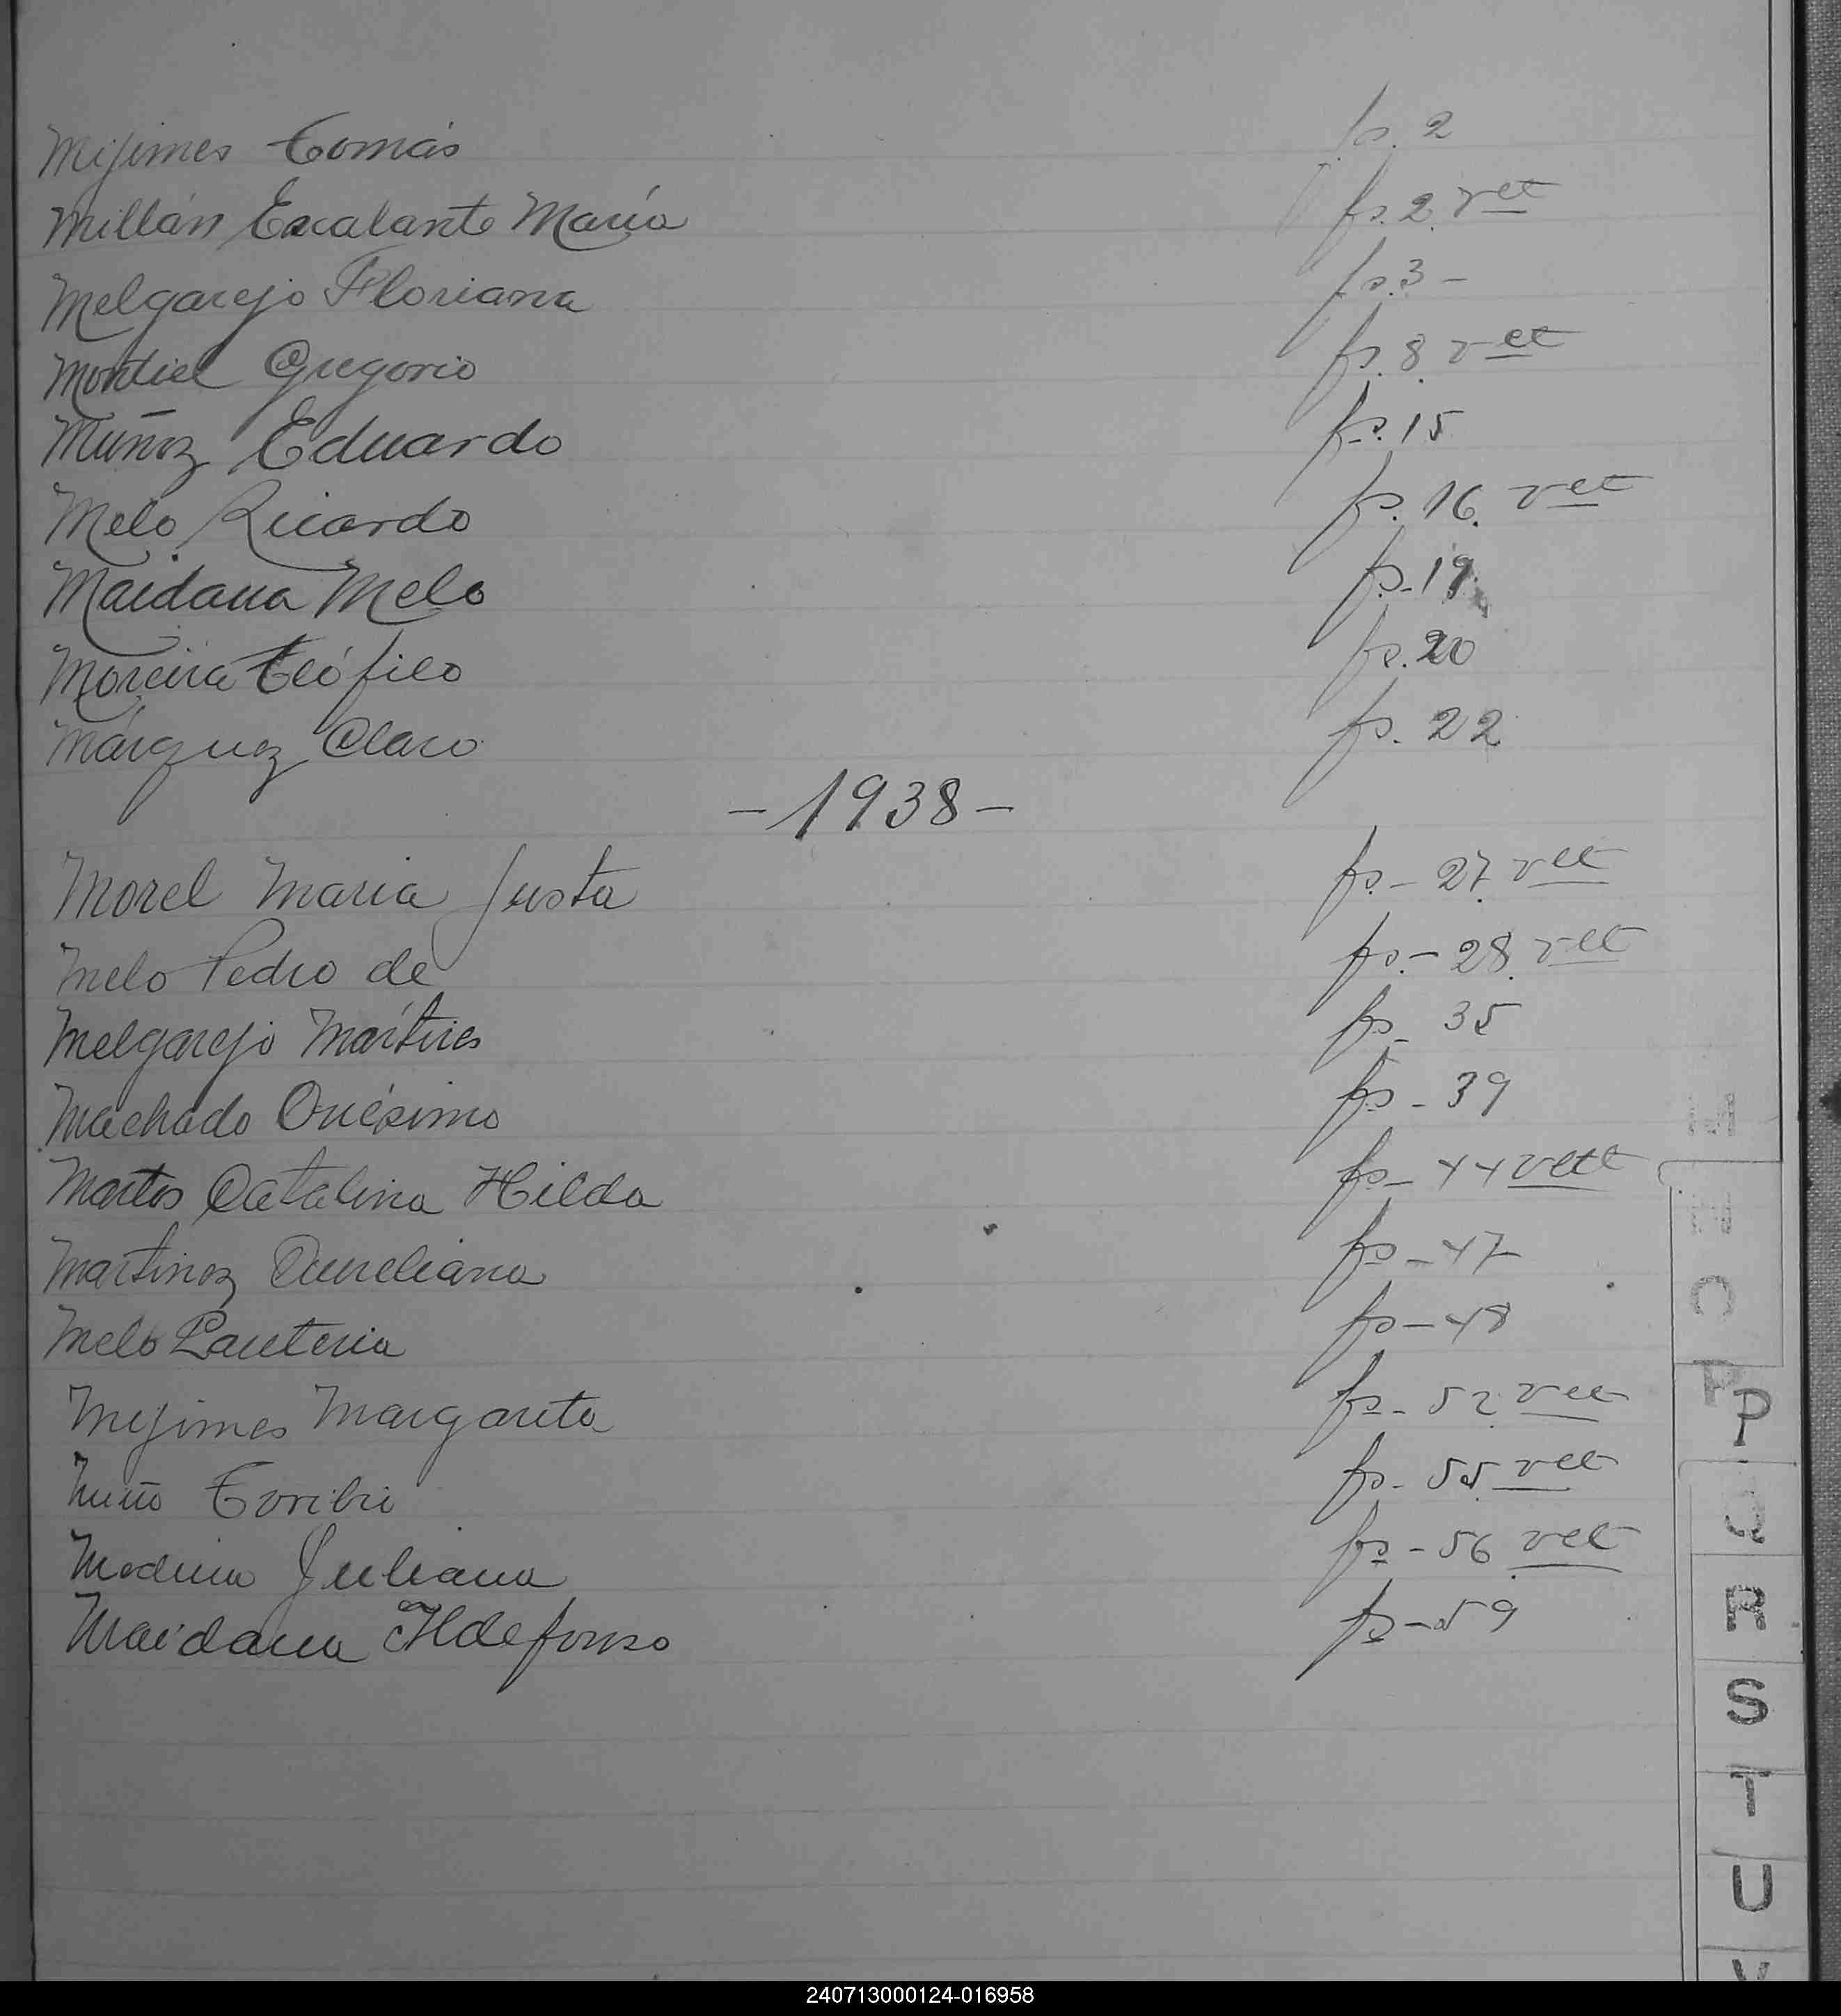 Mijimes Tomás fs. 2
Millán Escalante María fs. 2 vct
Melgarejo Floriana fs. 3 -
Montiel Gregorio fs. 8 vct
Muñoz Eduardo fs. 15
Melo Ricardo fs. 16 vct
Maidana Melo fs. 19
Moreira Teófilo fs. 20
Márquez Claro fs. 22
- 1938 -
Morel Maria Justa fs - 27 vct
Melo Pedro de fs. - 28 vct
Melgarejo Mártires fs - 35
Machado Onésimo fs - 39
Catalina Hilda fs - 44 vct
Martinez Aureliana fs - 47
Melo fs - 48
Mijimes Margarita fs - 52 vct
Toribio fs - 55 vct
Medina Juliana fs - 56 vct
Maidana Ildefonso fs - 59
P
Q
R
S
T
U
V
240713000124-016958